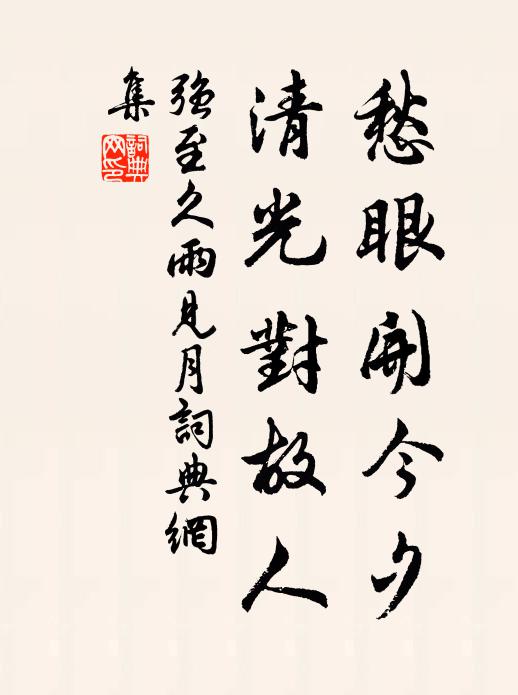 愁眼開今夕
清光對故人
強至久雨見月詞典網
集
詞典網印